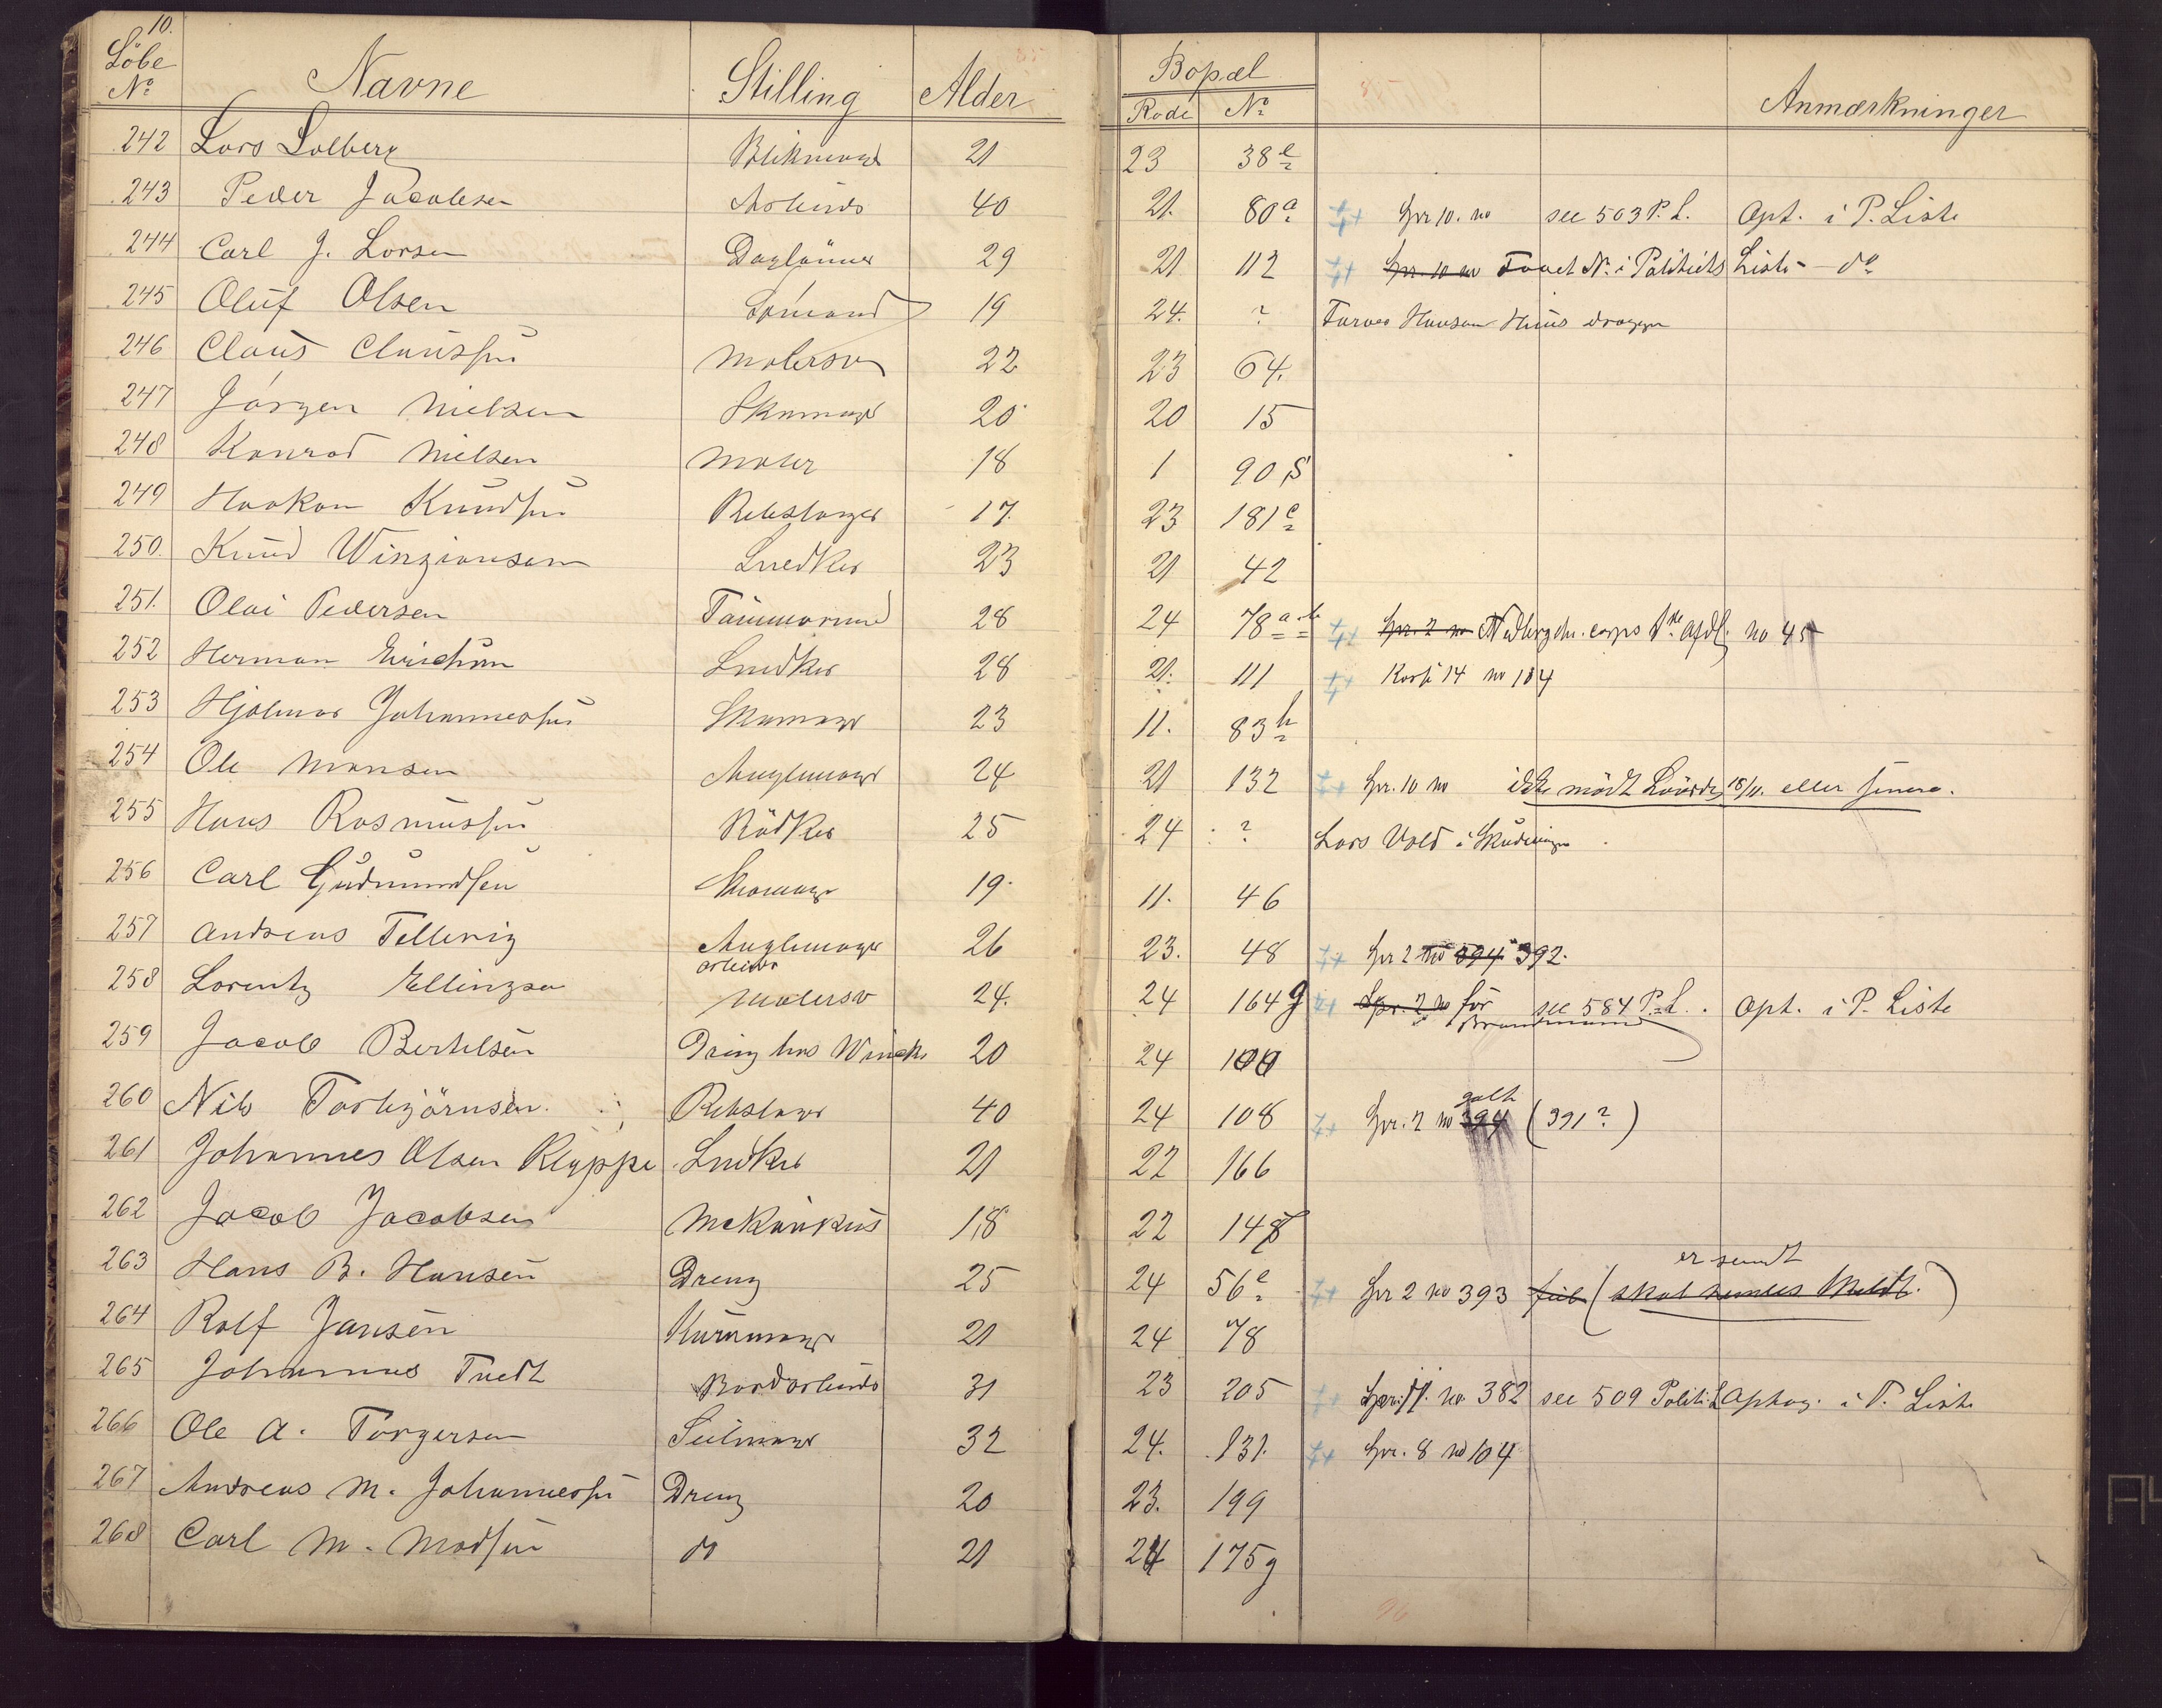 10.
Löbe No Navne Stilling Alder Bopæl Rode No Anmærkninger
242 Lars Solberg Blikmagr 21 23 38e
243 Peder Jacobsen Arbeids 40 21. 80a Gr 10. no see 503 P. L. Opt. i P. Liste
244 Carl J. Larsen Daglönner 29 21 112 Gr. 10 no Faaet No i Politiets Liste - do
245 Oluf Olsen Sömand 19 24. ? Hansen Huus
246 Claus Claussen Malersv 22 23 64.
247 Jörgen Nielsen Skomagr 20 20 15
248 Konrad Nielsen Maler 18 1 90 S
249 Haakon Knudsen Rebslager 17. 23 181c
250. Knud Wingiansom Snedker 23 21 42
251. Olai Pedersen Tömmermd 28 24 78a-b Gr. 2 no Nedbrydn. corps 1ste afdl. no 45
252 Herman Erichsen Snedker 28 21. 111 14 no 184
253 Hjalmar Johannessen Skomagr 23 11. 83h
254 Ole Monsen 24 21 132 Gr. 10 no ikke mödt Löverdg 18/11. eller senere.
255 Hans Rasmussen Bödker 25 24 ? Lars Vold i
256 Carl Gudmundsen Skomagr 19. 11. 46
257 Andreas Tellevig 26 23. 48 Gr 2 no 394 392.
258 Lorentz Ellingsen arbeider Malersv 24. 24 164g Spr. 2 no för Brandmand see 584 P. L. Opt. i P. Liste
259 Jacob Bertelsen Dreng hos 20 24 100
260 Nils Torbjörnsen Rebslagr 40 24 108 Gr. 2 no 394 galt (391?)
261 Johannes Olsen Kleppe Snedker 21 22 166
262 Jacob Jacobsen Mekanikus 18 22 148
263 Hans B. Hansen Dreng 25 24 56e Gr 2 no 393 feil (skal sendes Meldt.) er sendt
264 Rolf Jansen Kurvmagr 21 24 78
265 Johannes Tvedt Bordarbeids 31 23 205 no 382 see 509 Politi L Optag. i P. Liste
266 Ole A. Torgersen Seilmagr 32 24. 131. Gr. 8 no 104
267 Andreas M. Johannessen Dreng 20 23. 199
268 Carl M. Madsen do 21 24 175g
96